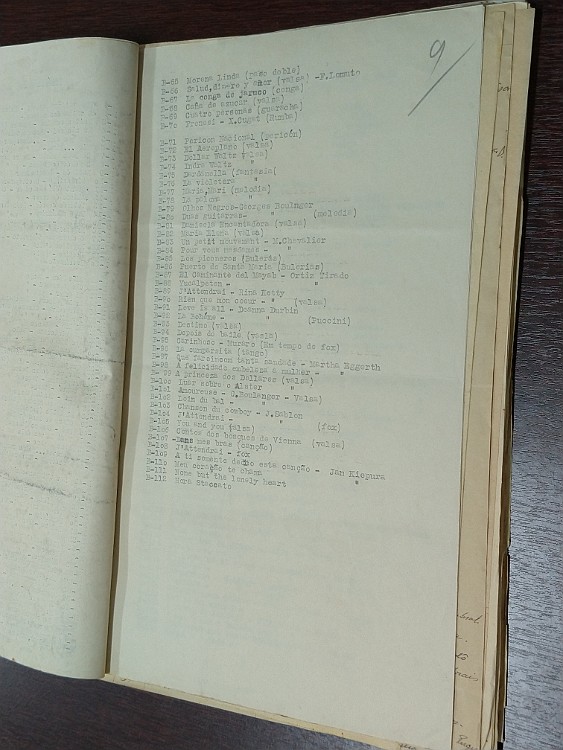 9
B-65 Morena Linda (paso doble)
B-66 Salud, dinero y amor (valsa) -F.Lomuto
B-67 La conga de jaruco (conga)
B-68 Caña de azucar (valsa)
B-69 Cuatro personas (guaracha)
B-70 Frenesi - X.Cugat (Rumba)
B-71 Pericon Nacional (pericón)
B-72 El Aeroplano (valsa)
B-73 Dollar Waltz valsa)
B-74 Indra Waltz "
B-75 Dardanella (fantasia(
B-76 La violetera "
B-77 Maria,Mari (melodia)
B-78 La paloma "
B-79 Olhos Negros-Georges Boulnger
B-80 Duas guitarras- " (melodia)
B-81 Boneccia Encantadora (valsa)
B-82 Maria Elena (valsa)
B-83 Un petit mouvement - M.Chevalier
B-84 Pour vous mesdames - "
B-85 Los piconeros (Bulerás)
B-86 Puerto de Santa Maria (Bulerias)
B-87 El Caminante del Mayab - Ortiz Tirado
B-88 Yucalpeten - "
B-89 J'Attendrai - Rina Ketty
B-90 Rien que mon coeur - " (valsa)
B-91 Love is all - Deanna Durbin
B-92 La Bohéme - " (Puccini)
B-93 Destino (valsa)
B-94 Depois do baile (vasla)
B-95 Carinhoso - Muraro (Em tempo de fox)
B-96 La cumparsita (tango)
B-97 Que fazeincom tanta saudade - Martha Eggerth
B-98 A felicidade embeleza a mulher - "
B-99 A princeza dos Dollares (valsa)
B-100 Luar sobre o Alster "
B-101 Amoureuse - G.Boulanger - Valsa)
B-102 Loin du bal - "
B-103 Chanson du cowboy - J.Sablon
B-104 J'Attendrai - "
B-105 You and you (alsa) (fox)
B-106 Contos dos bosques de Vienna (valsa)
B-107 nos meus braços (canção)
B-108 J'Attendrai - fox
B-109 A ti somente dedico esta canção - Jan Kiepura
B-110 Meu coração te chama "
B-111 None but the lonely heart
B-112 Hora Staccato